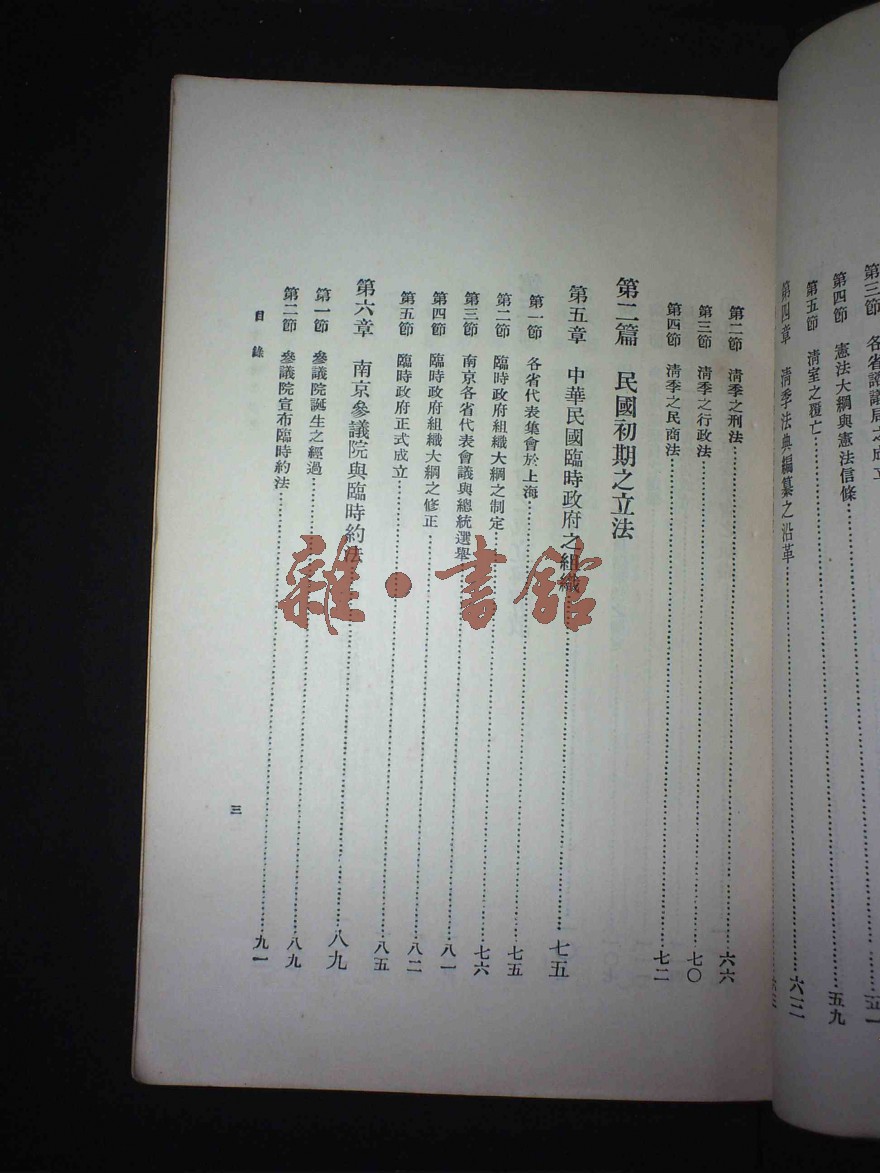 第三節 各省諮議局之成立
第四節 憲法大綱與憲法信條……五一
第五節 清室之覆亡……五九
第四章 清季法典編纂之沿革……六二
第二節 清季之刑法……六六
第三節 清季之行政法……七〇
第四節 清季之民商法……七二
第二篇 民國初期之立法
第五章 中華民國臨時政府之組織……七五
第一節 各省代表集會於上海……七五
第二節 臨時政府組織大綱之制定……七六
第三節 南京各省代表會議與總統選舉……八一
第四節 臨時政府組織大綱之修正……八二
第五節 臨時政府正式成立……八五
第六章 南京參議院與臨時約法……八九
第一節 參議院誕生之經過……八九
第二節 參議院宣布臨時約法……九一
目錄
三
雜·書館